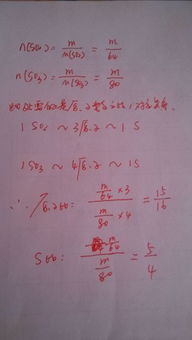 n(SO₂) = m/M(SO₂) = m/64
n(SO₃) = m/M(SO₃) = m/80
1 SO₂ ~ 3原子 ~ 1 S
1 SO₃ ~ 4原子 ~ 1S
∴ 原子比: (m/64 × 3)/(m/80 × 4) = 15/16
S比: (m/64)/(m/80) = 5/4